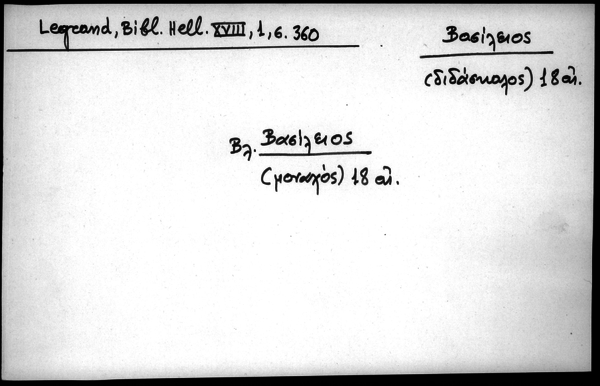 Legrand, Bibl. Hell. XVIII, 1, σ. 360
Βασίλειος
(διδάσκαλος) 18 αι.
Βλ. Βασίλειος
(μοναχός) 18 αι.